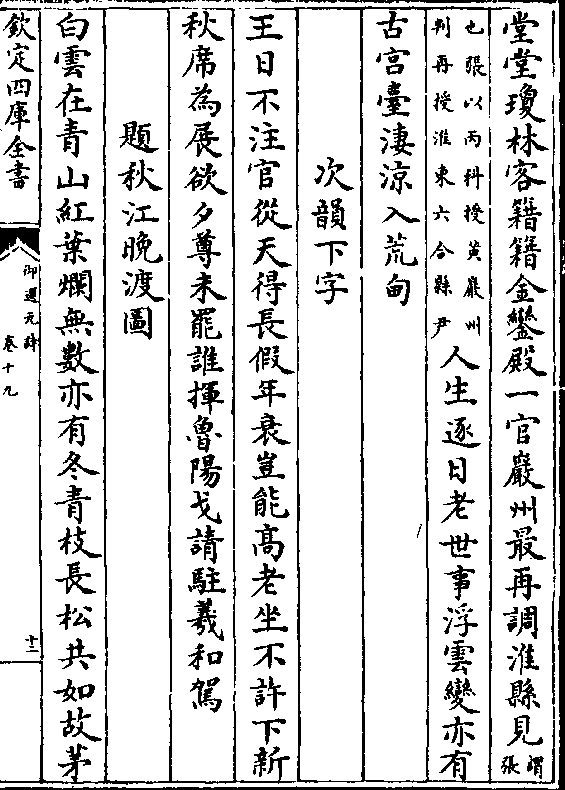 堂堂瓊林客籍籍金鑾殿一官嚴州最再調淮縣見謂張
也張以丙科授黄巖州
判再授淮東六合縣尹
人生逐日老世事浮雲變亦有
古宫臺淒涼入荒甸
次韻下字
王日不注官從天得長假年衰豈能髙老坐不許下新
秋席為展欲夕尊未罷誰揮魯陽戈請駐羲和駕
題秋江晚渡圖
白雲在青山紅葉爛無數亦有冬青枝長松共如故茅
欽定四庫全書
御選元詩
卷十九
十二